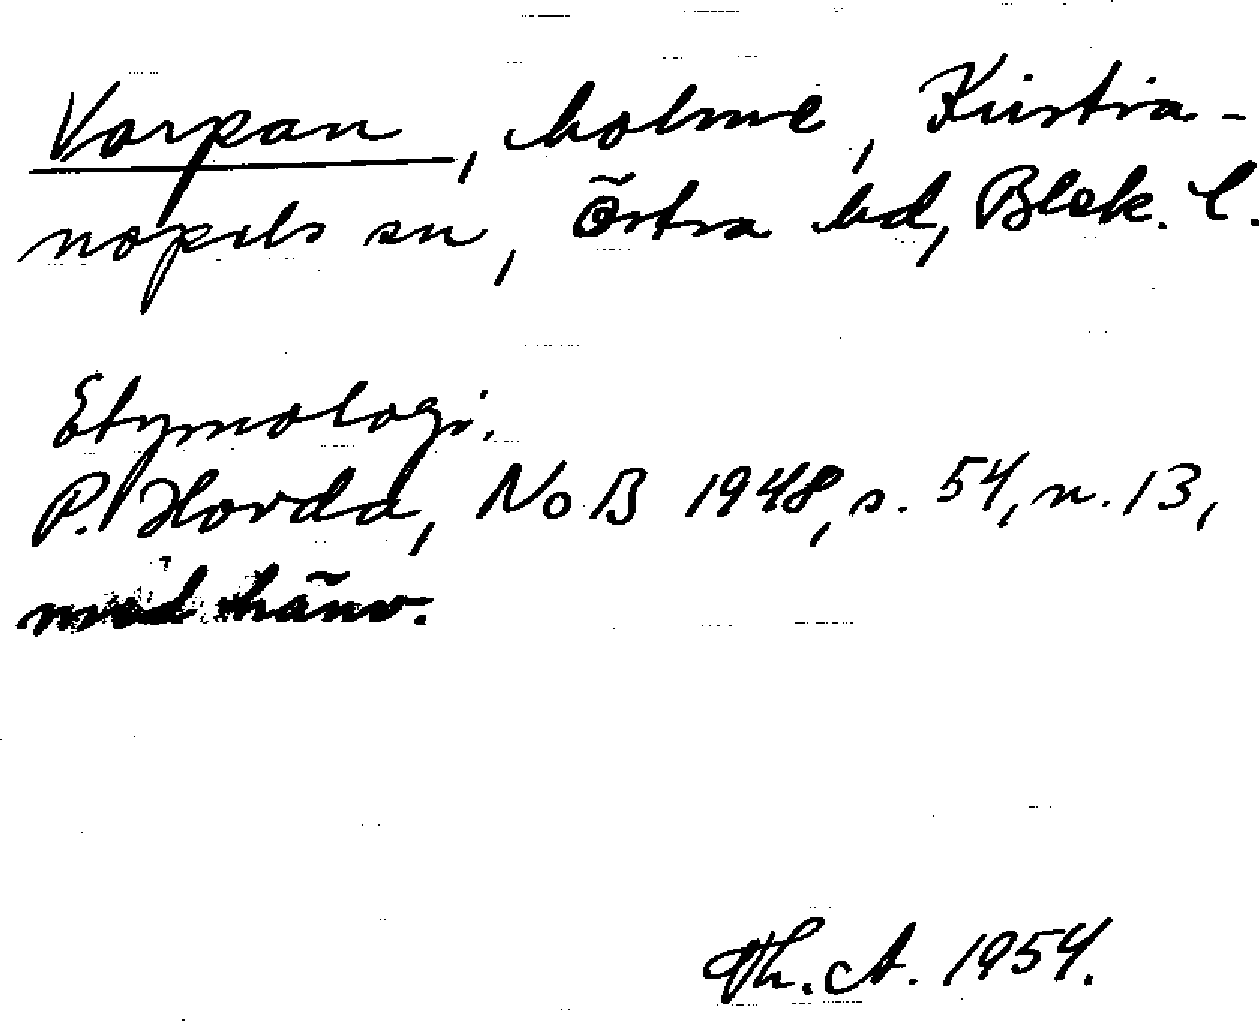 Vorpan, holme, Kristia-
nopels sn, Östra hd, Blek. l.
Etymologi.
P. Hovda, NoB 1948, s. 54, n. 13,
med hänv.
Th. A. 1954.